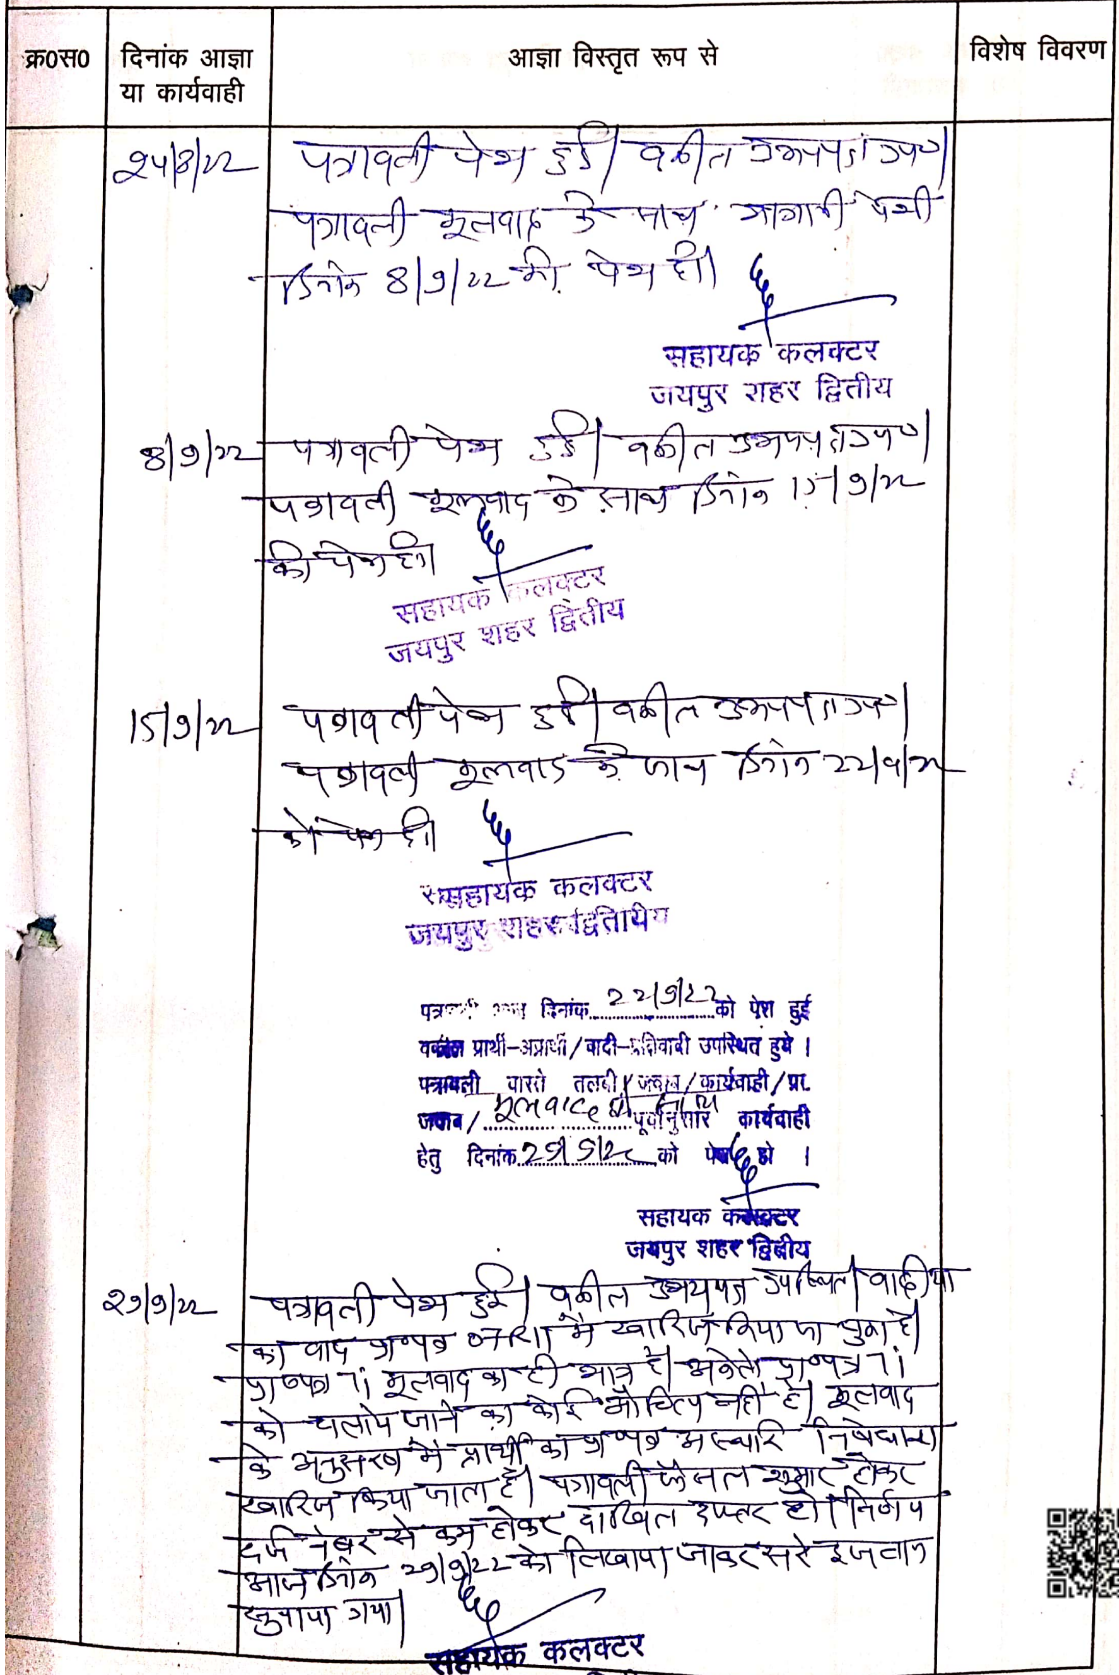 क्र०स० दिनांक आज्ञा या कार्यवाही आज्ञा विस्तृत रूप से विशेष विवरण
25/8/22 पत्रावली पेश हुई। वकील उभयपक्ष उप०।
पत्रावली मूलवाद के साथ आगामी पेशी
दिनांक 8/9/22 को पेश हो।
सहायक कलक्टर
जयपुर शहर द्वितीय
8/9/22 पत्रावली पेश हुई। वकील उभयपक्ष उप०।
पत्रावली मूलवाद के साथ दिनांक 15/9/22
को पेश हो।
सहायक कलक्टर
जयपुर शहर द्वितीय
15/9/22 पत्रावली पेश हुई। वकील उभयपक्ष उप०।
पत्रावली मूलवाद के साथ दिनांक 22/9/22
को पेश हो।
सहायक कलक्टर
जयपुर शहर द्वितीय
दिनांक 22/9/22 को पेश हुई
वकील प्रार्थी-अप्रार्थी/वादी-प्रतिवादी उपस्थित हुये ।
पत्रावली वास्ते तलबी/जवाब/कार्यवाही/प्रा.
जवाब/ मूलवाद पूर्वानुसार कार्यवाही
हेतु दिनांक 29/9/22 को पेश हो ।
सहायक कलक्टर
जयपुर शहर द्वितीय
29/9/22 पत्रावली पेश हुई। वकील उभयपक्ष उपस्थित। वादीया
का वाद प्रा०पत्र 07R11 में खारिज किया जा चुका है।
प्रा०पत्र T.i मूलवाद का ही भाग है। अकेले प्रा०पत्र T.i
को चलाये जाने का कोई औचित्य नहीं है। मूलवाद
के अनुसरण में प्रार्थी का प्रा०पत्र अस्थाई निषेधाज्ञा
खारिज किया जाता है। पत्रावली फैसल शुमार होकर
दर्ज नंबर से कम होकर दाखिल दफ्तर हो। निर्णय
आज दिनांक 29/9/22 को लिखाया जाकर सरे इजलास
सुनाया गया।
सहायक कलक्टर